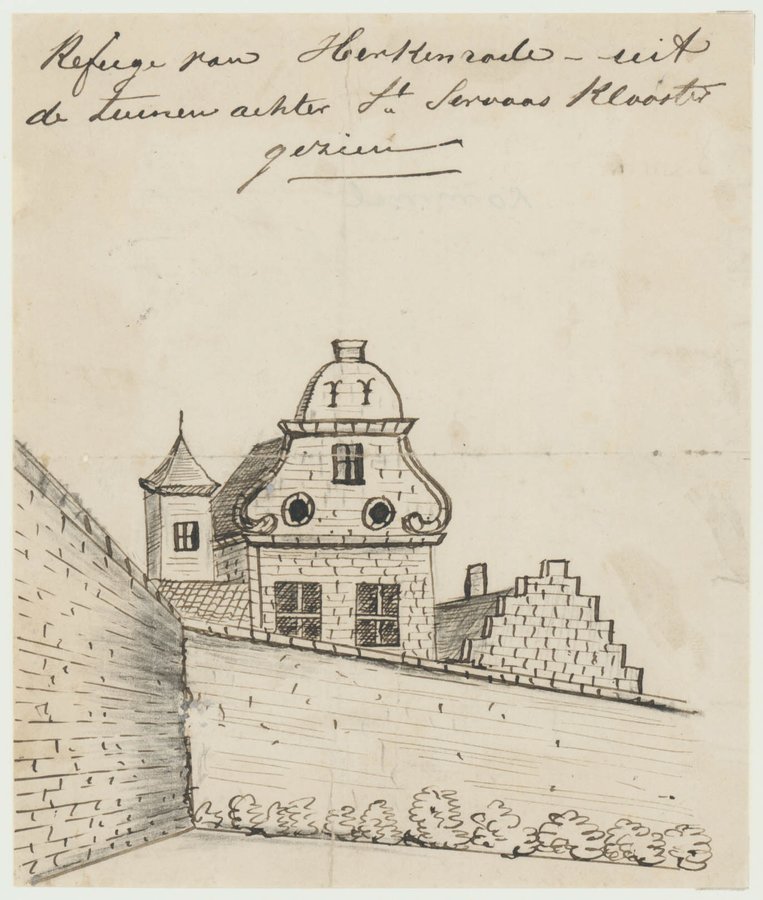 Refuge van Herkenrode - uit
de tuinen achter St. Servaas Klooster
gezien